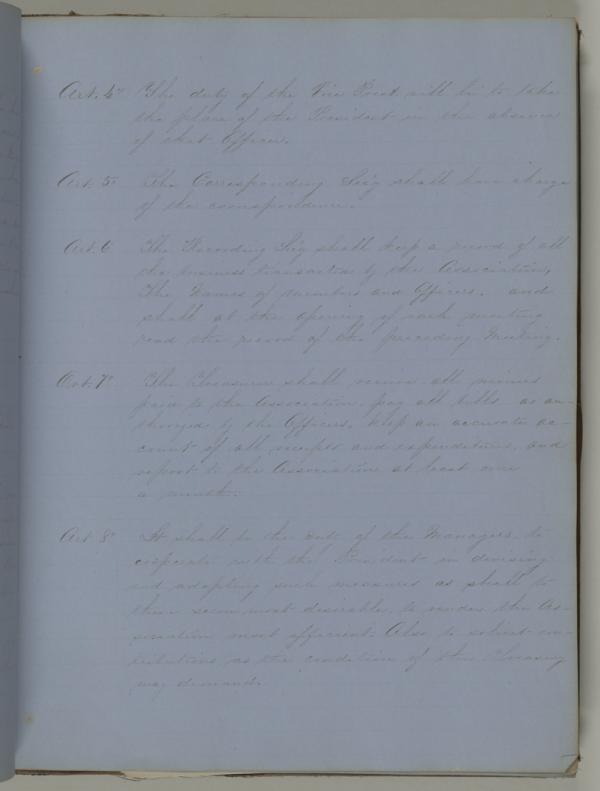 Art. 4th The duty of the Vice Presdt will be to take
the place of the President in the absence
of that Officer.
Art. 5th The Corresponding Sec'y shall have charge
of the correspondence.
Art. 6 The Recording Sec'y shall keep a record of all
the business transacted by the Association,
The Names of members and Officers. and
shall at the opening of each meeting
read the record of the preceding Meeting.
Art. 7th The Treasurer shall receive all monies
paid to the Association, pay all bills as au-
thorized by the Officers, keep an accurate ac-
count of all receipts and expenditures, and
report to the Association at least once
a month.
Art 8th It shall be the duty of the Managers to
cooperate with the President in devising
and adopting such measures as shall to
them seem most desirable, to render the As-
sociation most efficient. Also to solicit con-
tributions as the condition of the Treasury
may demand.